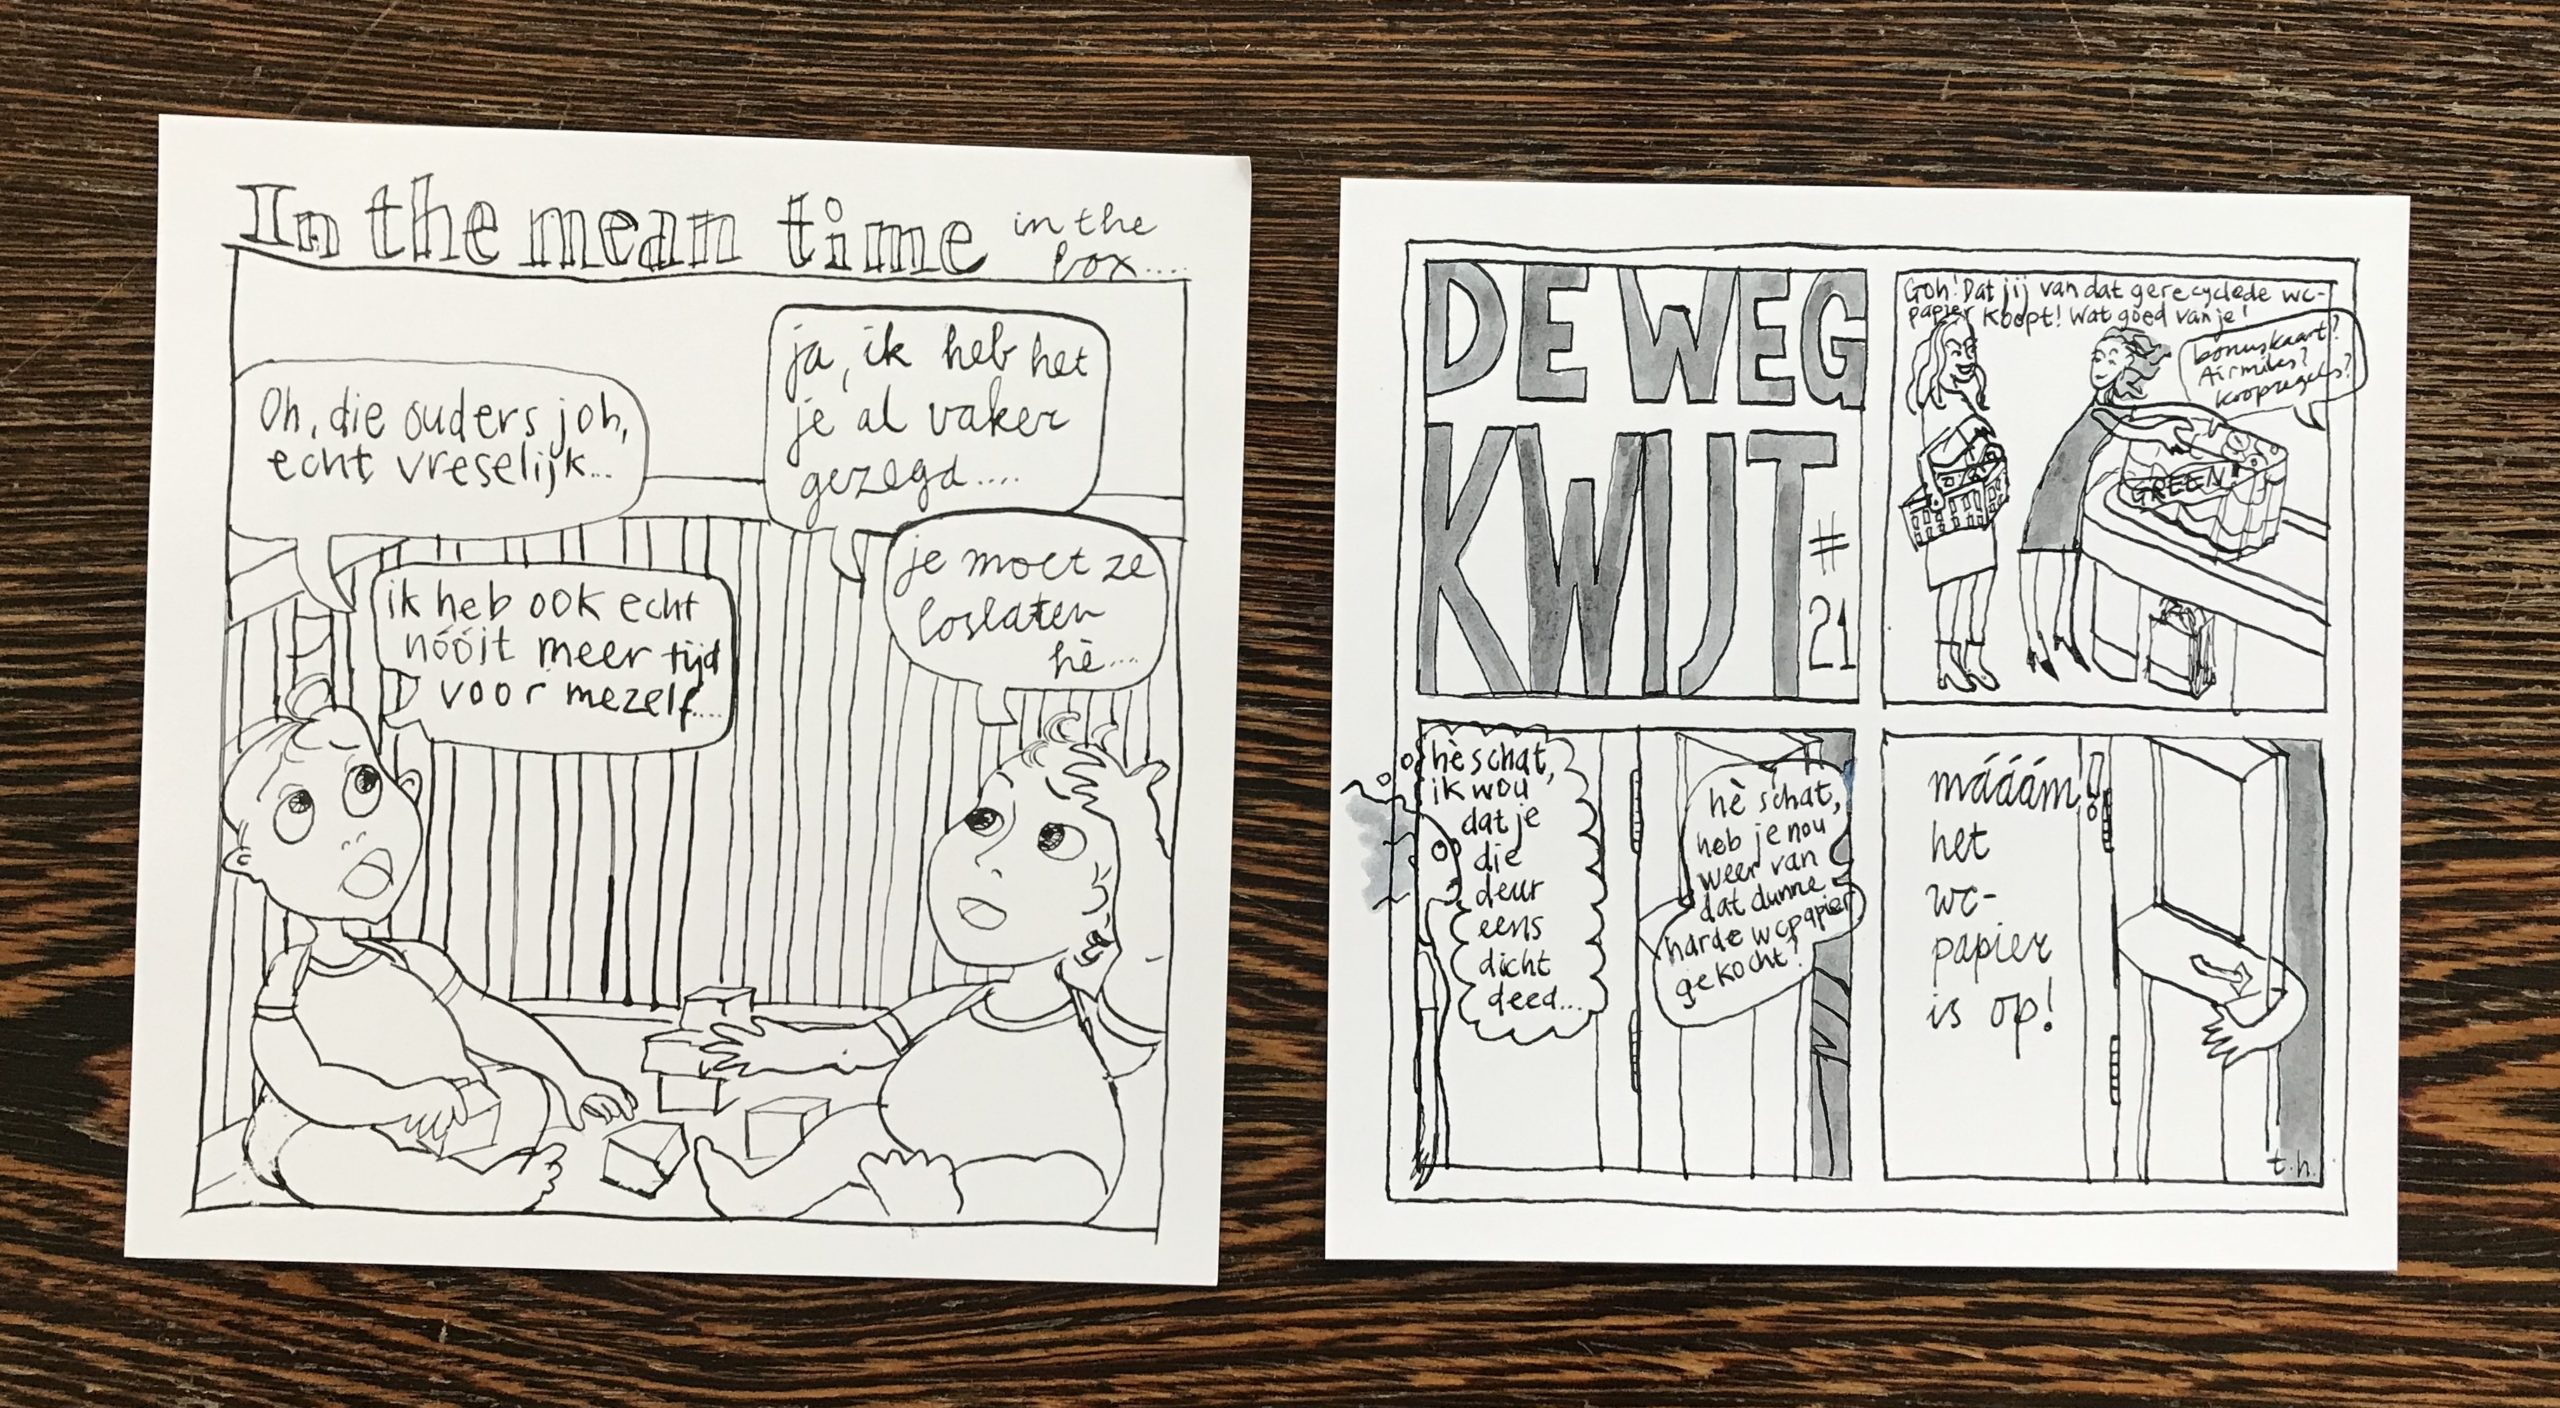 In the mean time in the
box....
Oh, die ouders joh,
echt vreselijk...
ja, ik heb het
je al vaker
gezegd....
ik heb ook echt
nóóit meer tijd
voor mezelf....
je moet ze
loslaten
hè....
DE WEG
KWIJT
#
21
Goh! Dat jij van dat gerecyclede wc-
papier koopt! Wat goed van je!
bonuskaart?
Airmiles?
koopzegels?
GREEN
hè schat,
ik wou
dat je
die
deur
eens
dicht
deed...
hè schat,
heb je nou
weer van
dat dunne
harde wcpapier
gekocht?
máááám!
het
wc-
papier
is op!
t.h.